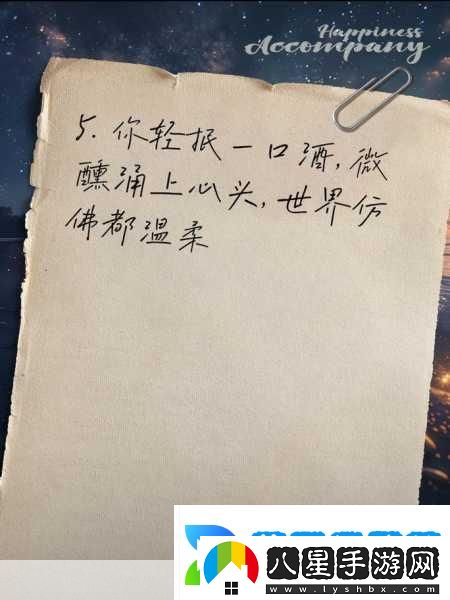 Happiness
Accompany
5. 你轻抿一口酒，微
醺涌上心头，世界仿
佛都温柔
八星手游网
www.lyshbx.com